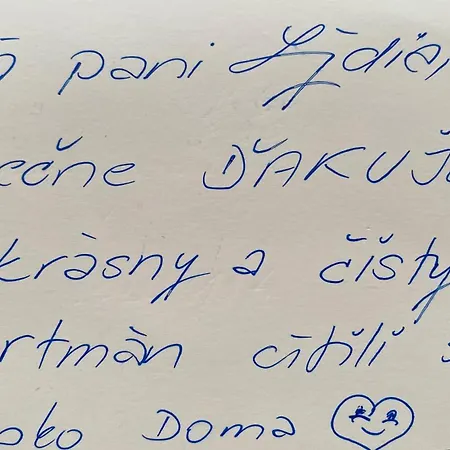 pani Lýdia
ečne ĎAKUJ
krásny a čistý
rtmán cítili
ako DOMA